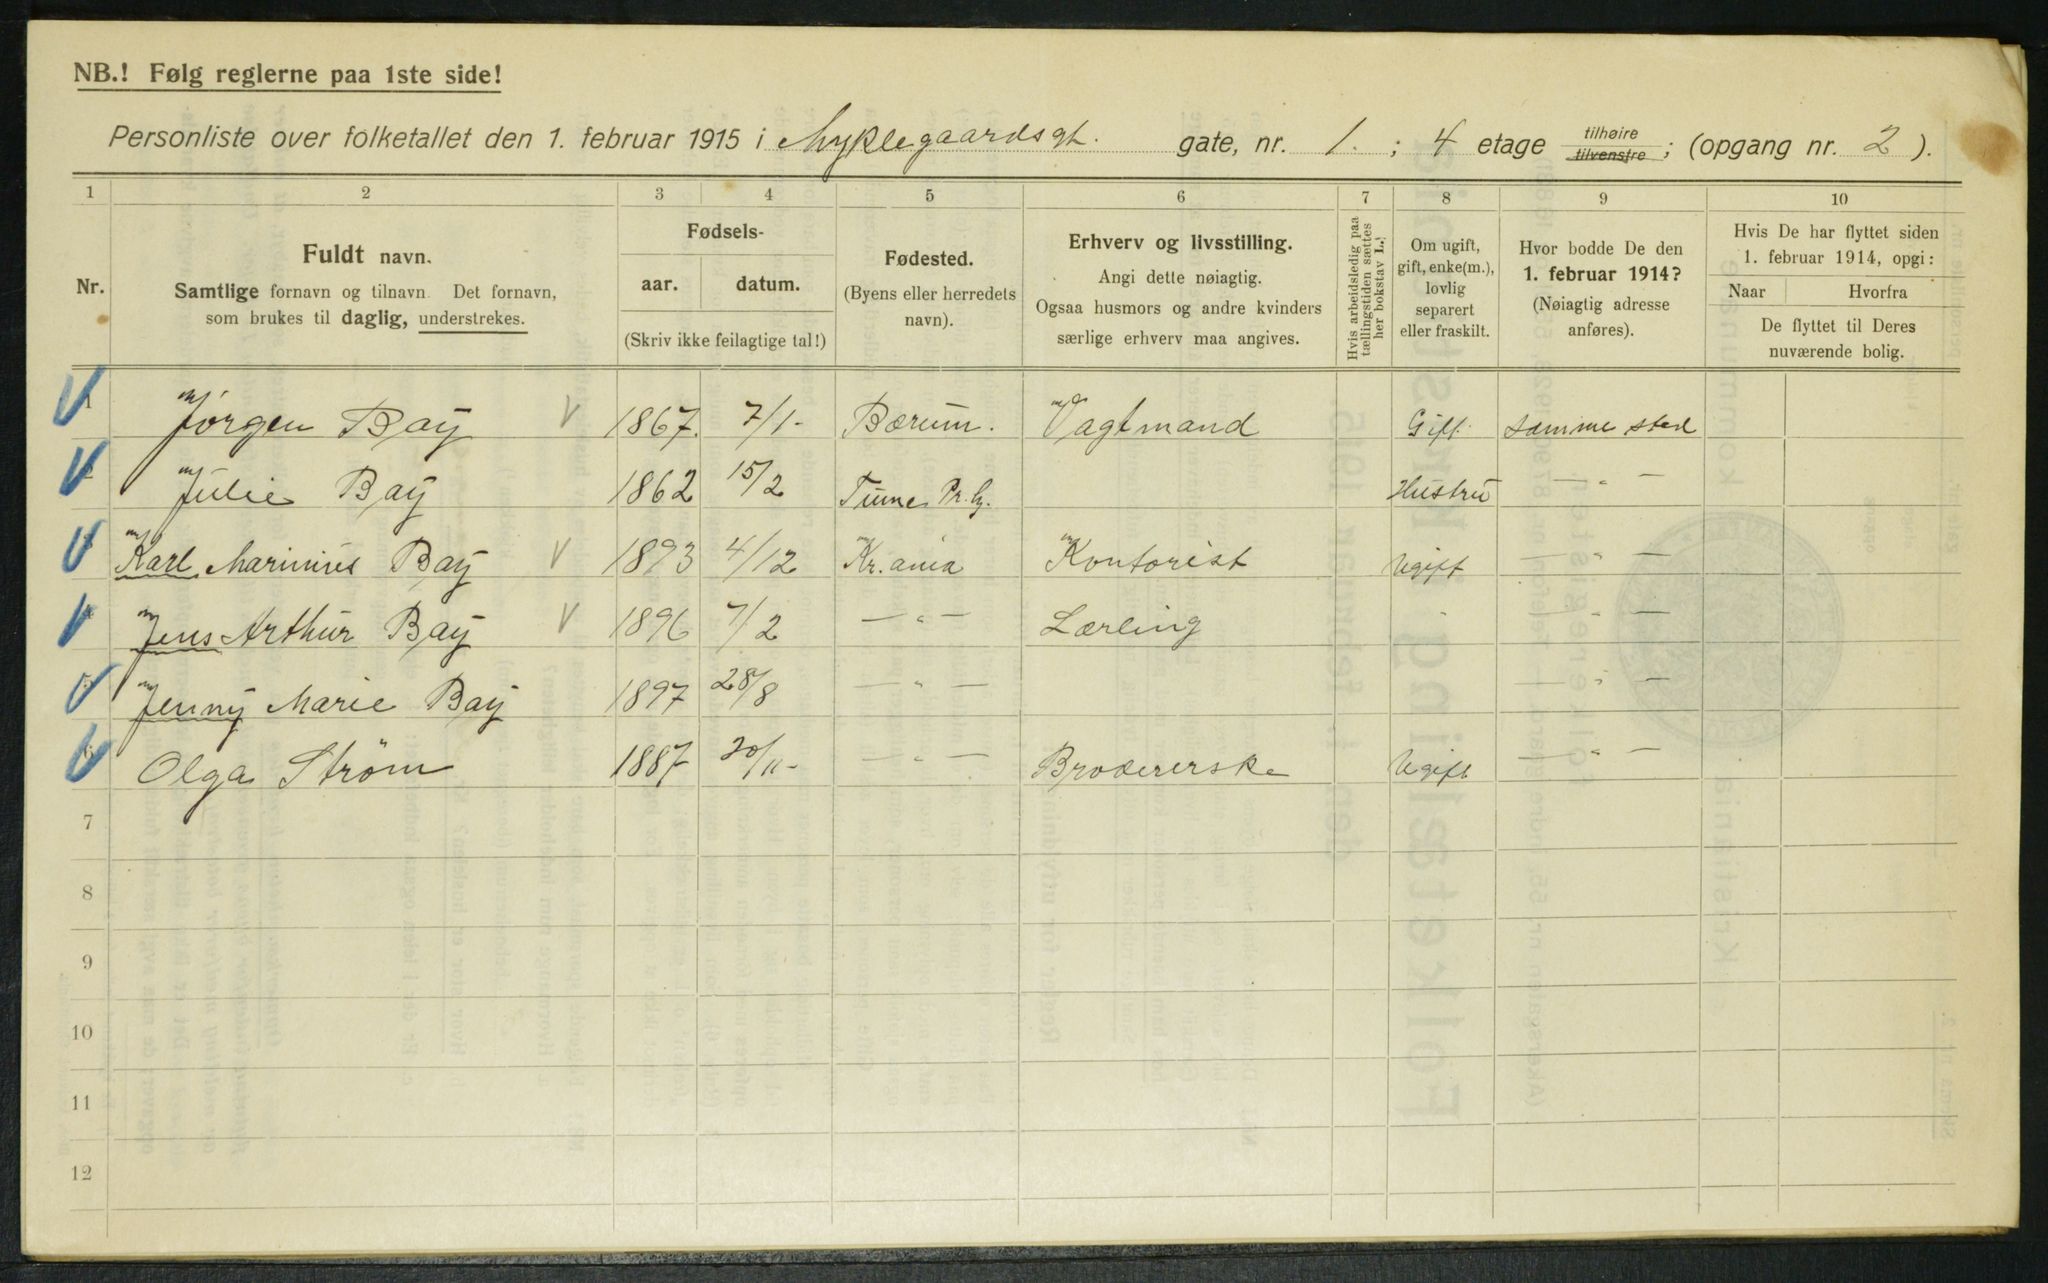 NB.! Følg reglerne paa 1ste side!
Personliste over folketallet den 1. februar 1915 i Myklegaardsgt. gate, nr. 1. ; 4 etage tilhøire tilvenstre ; (opgang nr. 2 ).
1 2 3 4 5 6 7 8 9 10
Nr.
Fuldt navn.
Samtlige fornavn og tilnavn Det fornavn,
som brukes til daglig, understrekes.
Fødsels-
aar. datum.
(Skriv ikke feilagtige tal!)
Fødested.
(Byens eller herredets
navn).
Erhverv og livsstilling.
Angi dette nøiagtig.
Ogsaa husmors og andre kvinders
særlige erhverv maa angives.
Hvis arbeidsledig paa
tællingstiden sættes
her bokstav L.!
Om ugift,
gift, enke(m.),
lovlig
separert
eller fraskilt.
Hvor bodde De den
1. februar 1914?
(Nøiagtig adresse
anføres).
Hvis De har flyttet siden
1. februar 1914, opgi:
Naar Hvorfra
De flyttet til Deres
nuværende bolig.
1 Jørgen Bay 1867. 7/1- Bærum. Vagtmand Gift Samme sted
2 Julie Bay 1862 15/2 Tune Hustru — " —
3 Karl Marinius Bay 1893 4/12 Kr.ania Kontorist Ugift — " —
4 Jens Arthur Bay 1896 7/2 — " — Lærling " — " —
5 Jenny Marie Bay 1897 28/8 — " — — " —
6 Olga Strøm 1887 20/11- — " — Brodererske Ugift — " —
7
8
9
10
11
12